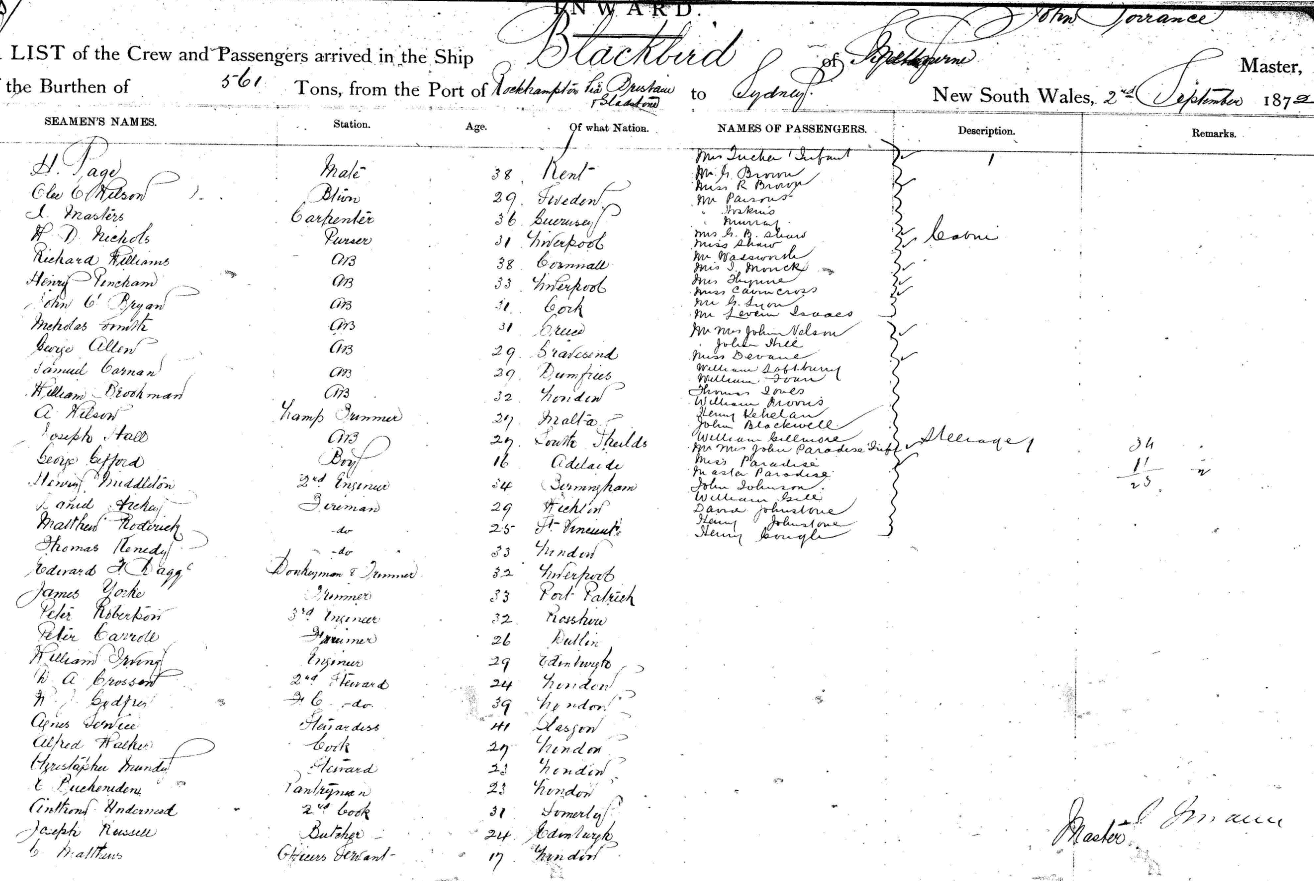 INWARD.
John Torrance
LIST of the Crew and Passengers arrived in the Ship Blackbird of Melbourne Master,
the Burthen of 561 Tons, from the Port of Rockhampton via Brisbane & Gladstone to Sydney New South Wales, 2nd September 187
SEAMEN'S NAMES. Station. Age. Of what Nation. NAMES OF PASSENGERS. Description. Remarks.
H. Page Mate 38 Kent
Wilson 29 Sweden
J. Masters Carpenter 36 Guernsey
H D Nichols Purser 31 Liverpool
Richard Williams AB 38 Cornwall
Henry Pincham AB 33 Liverpool
John O'Bryan AB 31 Cork
Nicholas Smith AB 31 Greece
George Allen AB 29 Gravesend
Samuel Carnan AB 29 Dumfries
William Brookman AB 32 London
A Wilson Lamp Trimmer 27 Malta
Joseph Hall AB 27 South Shields
George Gifford Boy 16 Adelaide
Henry Middleton 2nd Engineer 34 Birmingham
Fireman 29 Wicklow
Matthew Roderick -do 25 St Vincent
Thomas Kenedy -do 33 London
Edward Donkeyman & Trimmer 32 Liverpool
James Yorke Trimmer 33 Port Patrick
Peter Robertson 3rd Engineer 32
Peter Carroll 26 Dublin
William Irving Engineer 29 Edinburgh
A Crossen 2nd Steward 24 London
Godfrey F C -do 39 London
Agnes Service Stewardess 41 Glasgow
Alfred Walker Cook 27 London
Christopher Mundy Steward 23 London
Pantryman 23 London
Anthony Underwood 2nd Cook 31
Joseph Russell Butcher 24 Edinburgh
C Matthews Officers Servant 17 London
Mrs Tucker Infant 1
Mr G Brown
Miss R Brown
Mr Parsons
" Hoskins
" Murray
Mrs G. B. Shaw Cabin
Miss Shaw
Mr Wadsworth
Mrs J. Monck
Mrs Flynne
Miss Cairncross
Mr G. Lyon
Mr Levein Isaacs
Mr Mrs John Nelson
" John Hill
Miss Devane
William
William
Thomas Jones
William
Henry
John Blackwell
William Gillmore
Mr Mrs John Paradise Inft Steerage 34
Miss Paradise 11
Master Paradise 23
John Johnson
William Gill
David Johnstone
Henry Johnstone
Henry Gough
Master